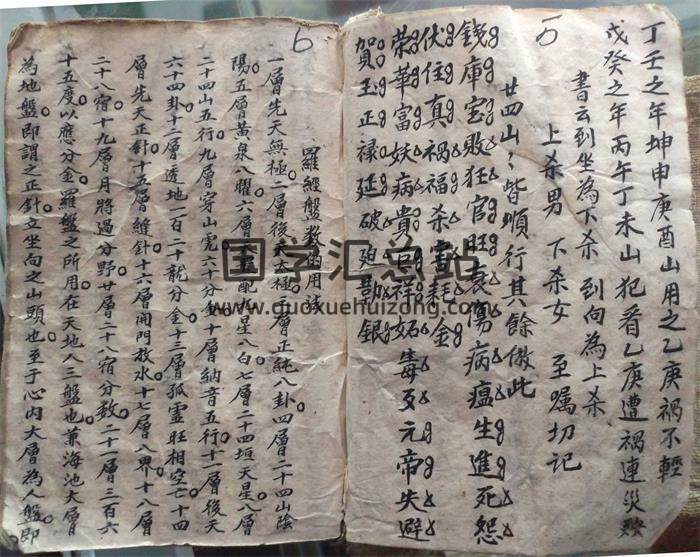 丁壬之年坤申庚酉山用之乙庚禍不輕
戊癸之年丙午丁未山犯着乙庚遭禍連災殃
書云到坐為下杀 到向為上杀
上杀男 下杀女 至嘱切記
廿四山〻皆順行其餘倣此
錢庫宝敗狂官旺衰傷病瘟生進死怨
伏位真禍福杀害耗金
荣華富妖病貴吉祥妬毒歹元帝失避
賀玉正禄延破廹勸銀
5
6
羅經盤数的用法
一層先天無極二層後天太極三層正純八卦四層二十四山陰
陽五層黃泉八曜六層 配九星八白七層二十四垣天星八層
二十四山五行九層穿山宪六十分金十層納音五行十一層後天
六十四卦十二層透地一百二十龍分金十三層孤虛旺相空亡十四
層先天正針十五層縫針十六層開門放水十七層八界十八層
二十八宿十九層月將過分野廿層二十八宿分数二十一層三百六
十五度以應分金羅盤之所用在天地人三盤也兼海池大層
為地盤即謂之正針立坐向之山頭也至于心内大層為人盤即
国学汇总站
www.guoxuehuizong.com